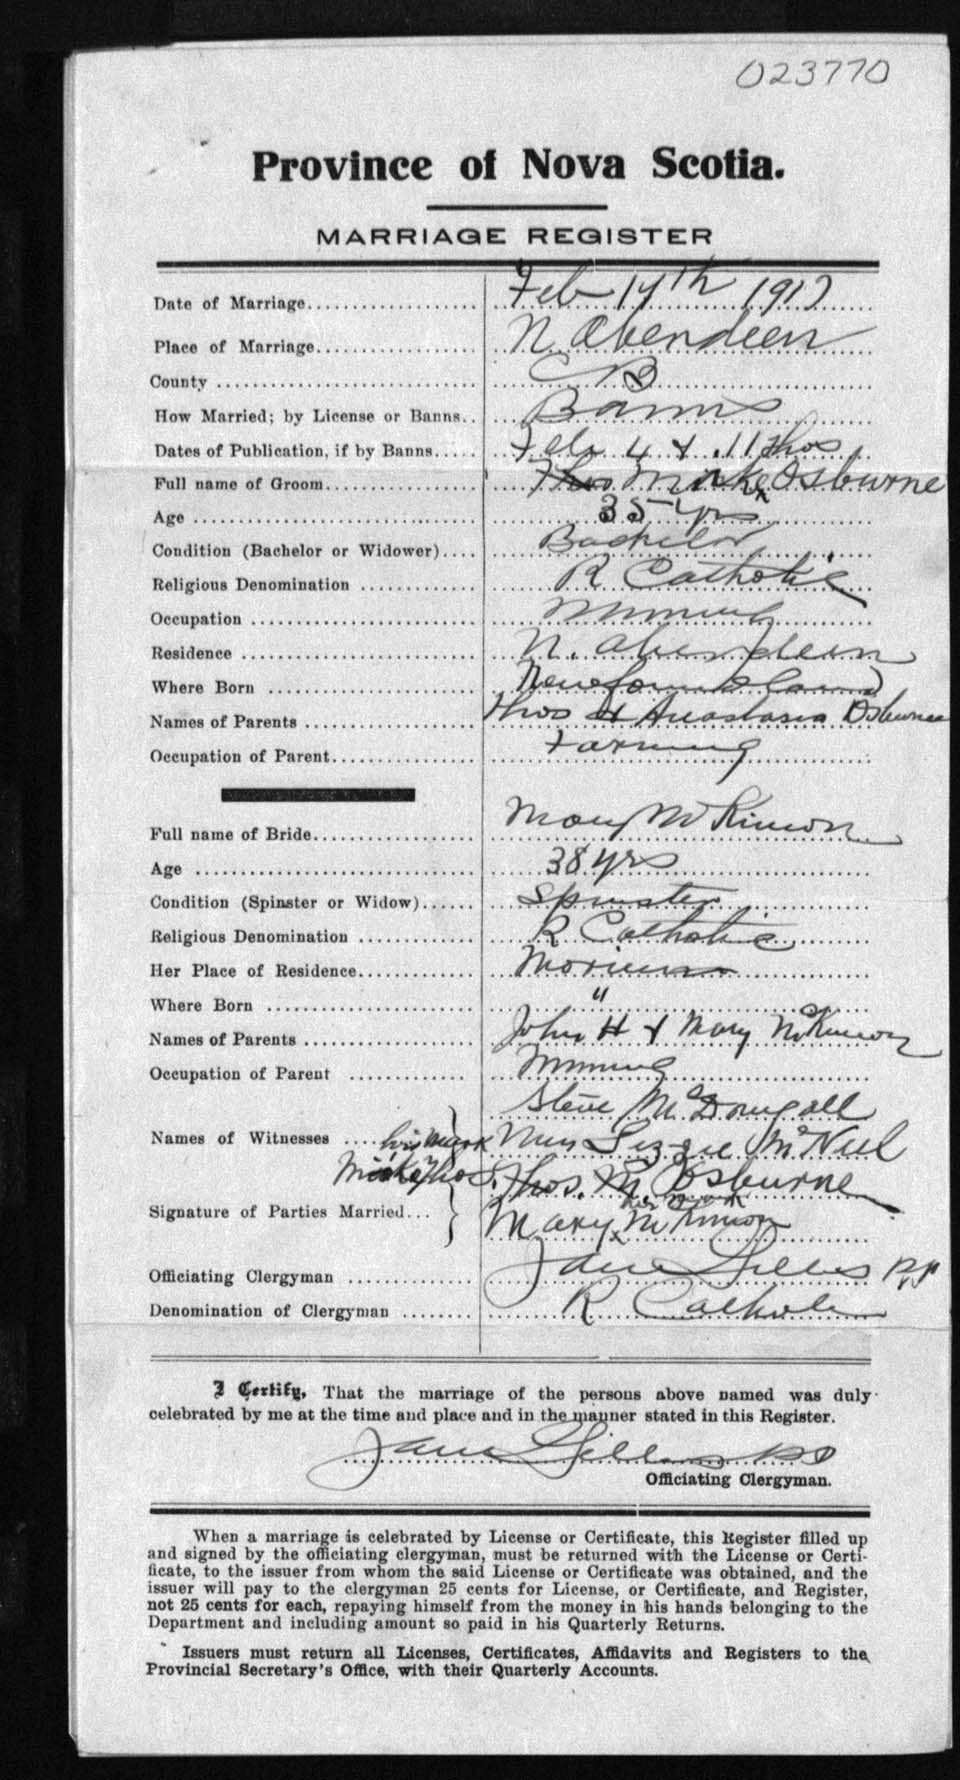 023770
Province of Nova Scotia.
MARRIAGE REGISTER
Date of Marriage Feb 14th 1917
Place of Marriage N. Aberdeen
County CB
How Married; by License or Banns Banns
Dates of Publication, if by Banns Feb 4 & 11
Full name of Groom Thos Mike Osburne
Age 35 yrs
Condition (Bachelor or Widower) Bachelor
Religious Denomination R Catholic
Occupation Mining
Residence N. Aberdeen
Where Born Newfoundland
Names of Parents Thos & Anastasia Osburne
Occupation of Parent Farming
Full name of Bride Mary McKinnon
Age 38 yrs
Condition (Spinster or Widow) Spinster
Religious Denomination R Catholic
Her Place of Residence Morien
Where Born "
Names of Parents John H & Mary McKinnon
Occupation of Parent Mining
Steve McDougall
Names of Witnesses Lizzie McNeil
his mark
Thos. Osburne
her mark
Signature of Parties Married Mary x McKinnon
Officiating Clergyman Gillis PP
Denomination of Clergyman R Catholic
I Certify, That the marriage of the persons above named was duly
celebrated by me at the time and place and in the manner stated in this Register.
Gillis PP
Officiating Clergyman.
When a marriage is celebrated by License or Certificate, this Register filled up
and signed by the officiating clergyman, must be returned with the License or Certi-
ficate, to the issuer from whom the said License or Certificate was obtained, and the
issuer will pay to the clergyman 25 cents for License, or Certificate, and Register,
not 25 cents for each, repaying himself from the money in his hands belonging to the
Department and including amount so paid in his Quarterly Returns.
Issuers must return all Licenses, Certificates, Affidavits and Registers to the
Provincial Secretary's Office, with their Quarterly Accounts.